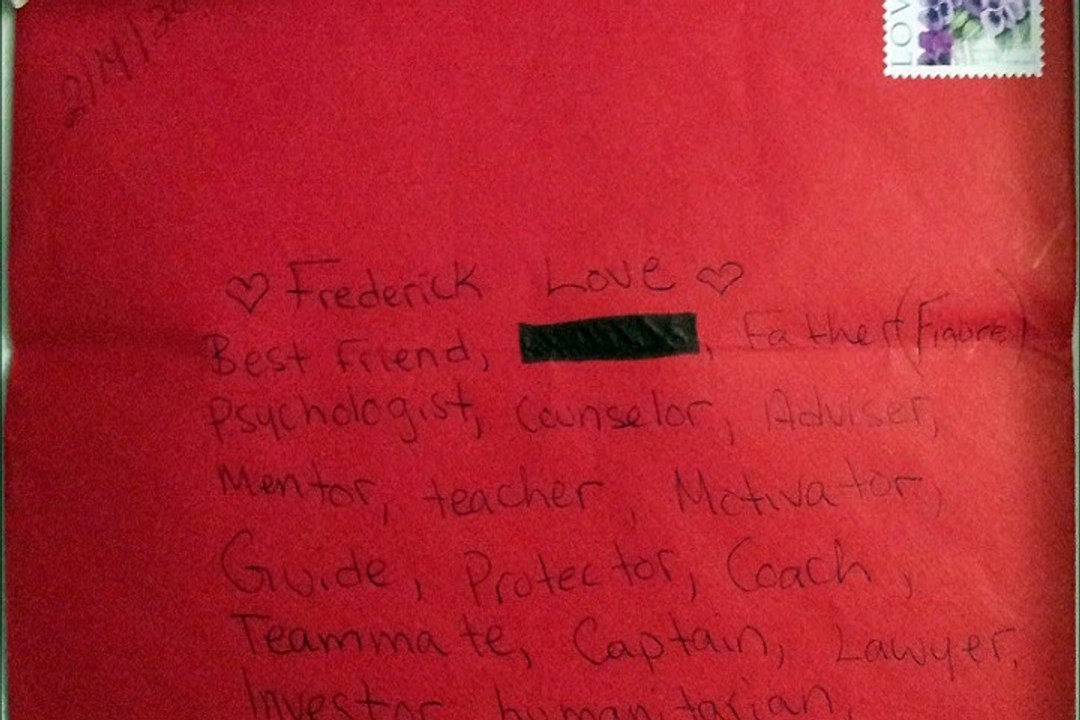 2/14/20
LOV
Frederick Love
Best Friend, , Father (Figure)
Psychologist, Counselor, Adviser,
Mentor, teacher, Motivator,
Guide, Protector, Coach,
Teammate, Captain, Lawyer,
Investor, humanitarian,